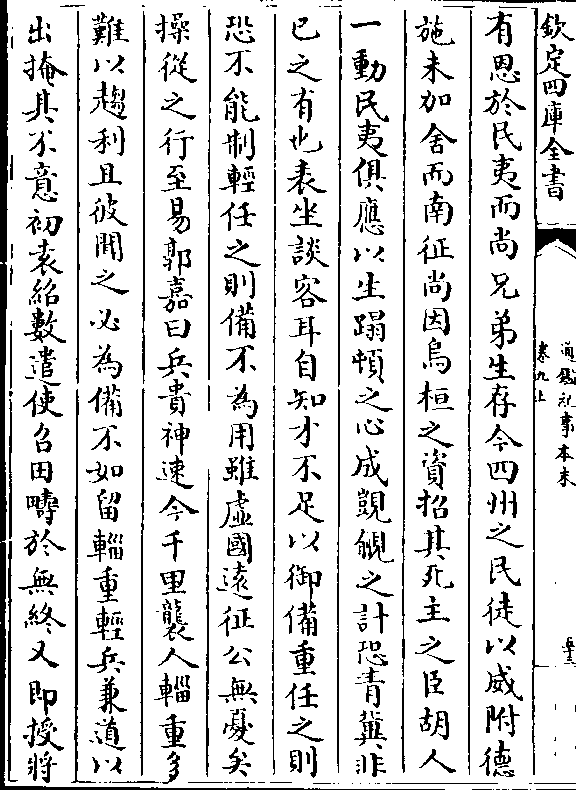 欽定四庫全書
通鑑紀事本末
卷九上
有恩於民夷而尚兄弟生存今四州之民徒以威附德
施未加舍而南征尚因烏桓之資招其死主之臣胡人
一動民夷俱應以生蹋頓之心成覬覦之計恐青冀非
已之有也表坐談客耳自知才不足以御備重任之則
恐不能制輕任之則備不為用雖虛國遠征公無憂矣
操從之行至易郭嘉曰兵貴神速今千里襲人輜重多
難以趨利且彼聞之必為備不如留輜重輕兵兼道以
出掩其不意初袁紹數遣使召田疇於無終又即授將